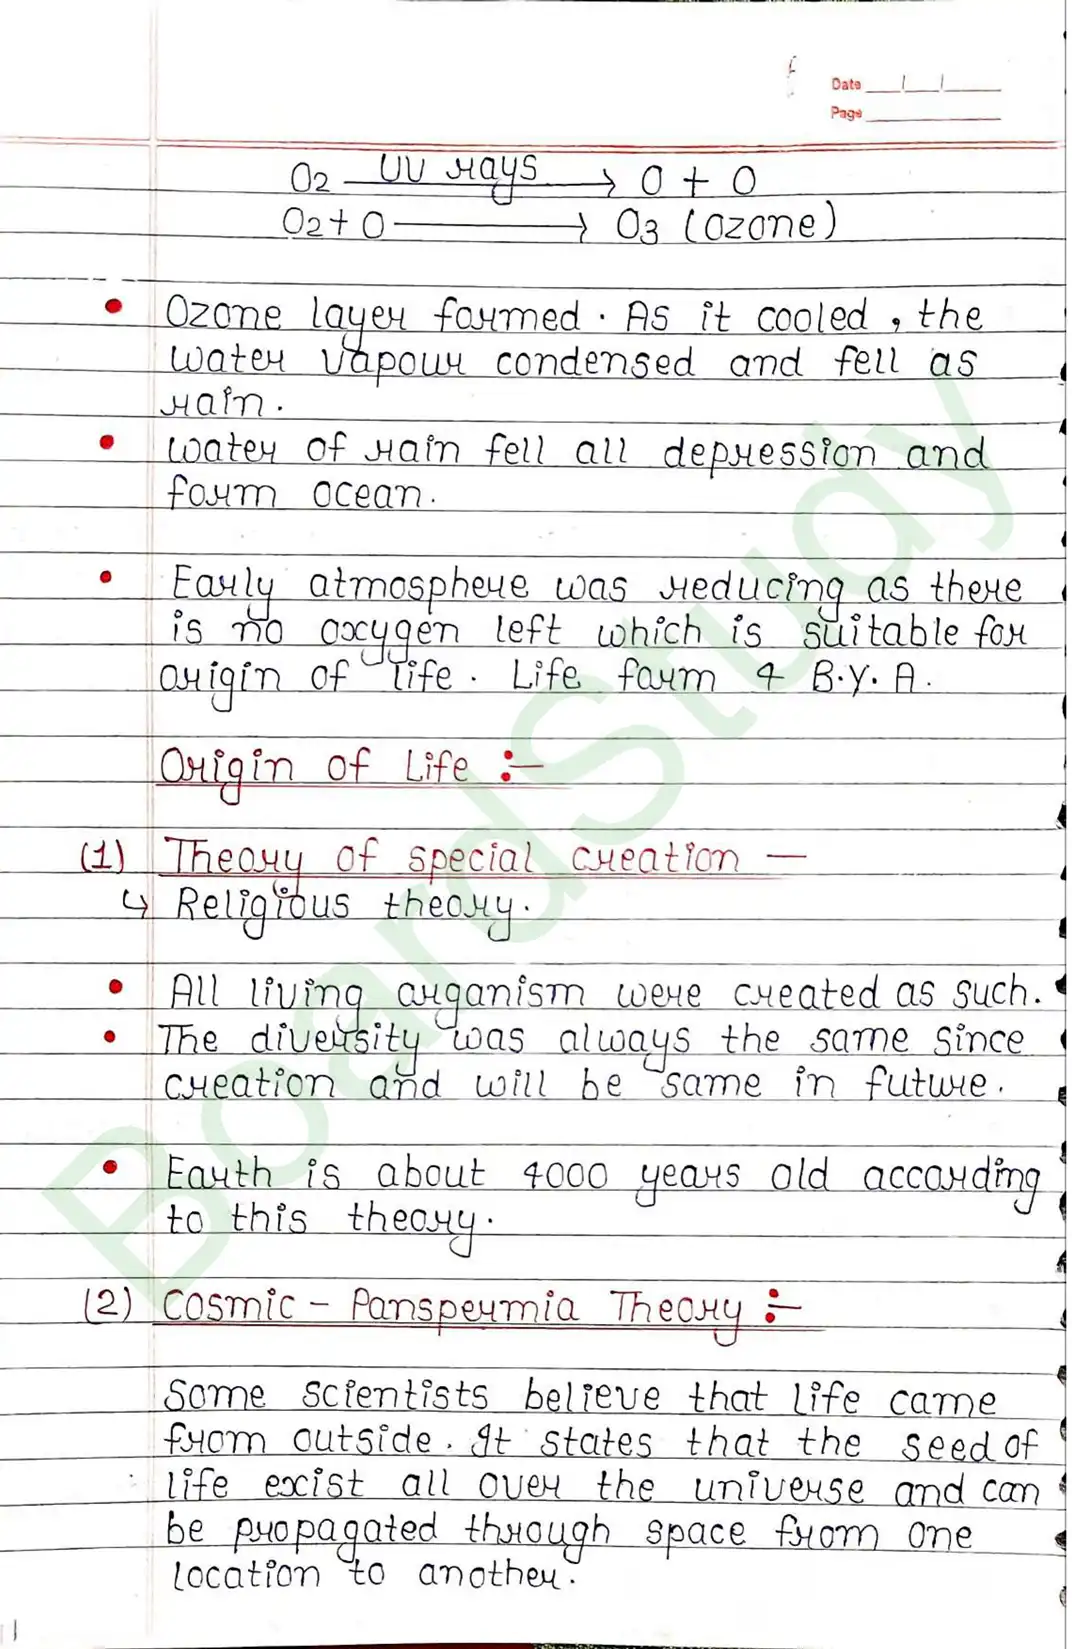 Date
Page
O2 UV rays → O + O
O2 + O → O3 (Ozone)
• Ozone layer formed. As it cooled, the
water vapour condensed and fell as
rain.
• Water of rain fell all depression and
form ocean.
• Early atmosphere was reducing as there
is no oxygen left which is suitable for
origin of life. Life form 4 B.Y.A.
Origin of Life :-
(1) Theory of special creation —
↳ Religious theory.
• All living organism were created as such.
• The diversity was always the same since
creation and will be same in future.
• Earth is about 4000 years old according
to this theory.
(2) Cosmic - Panspermia Theory :-
Some scientists believe that life came
from outside. It states that the seed of
life excist all over the universe and can
be propagated through space from one
location to another.
BoardStudy